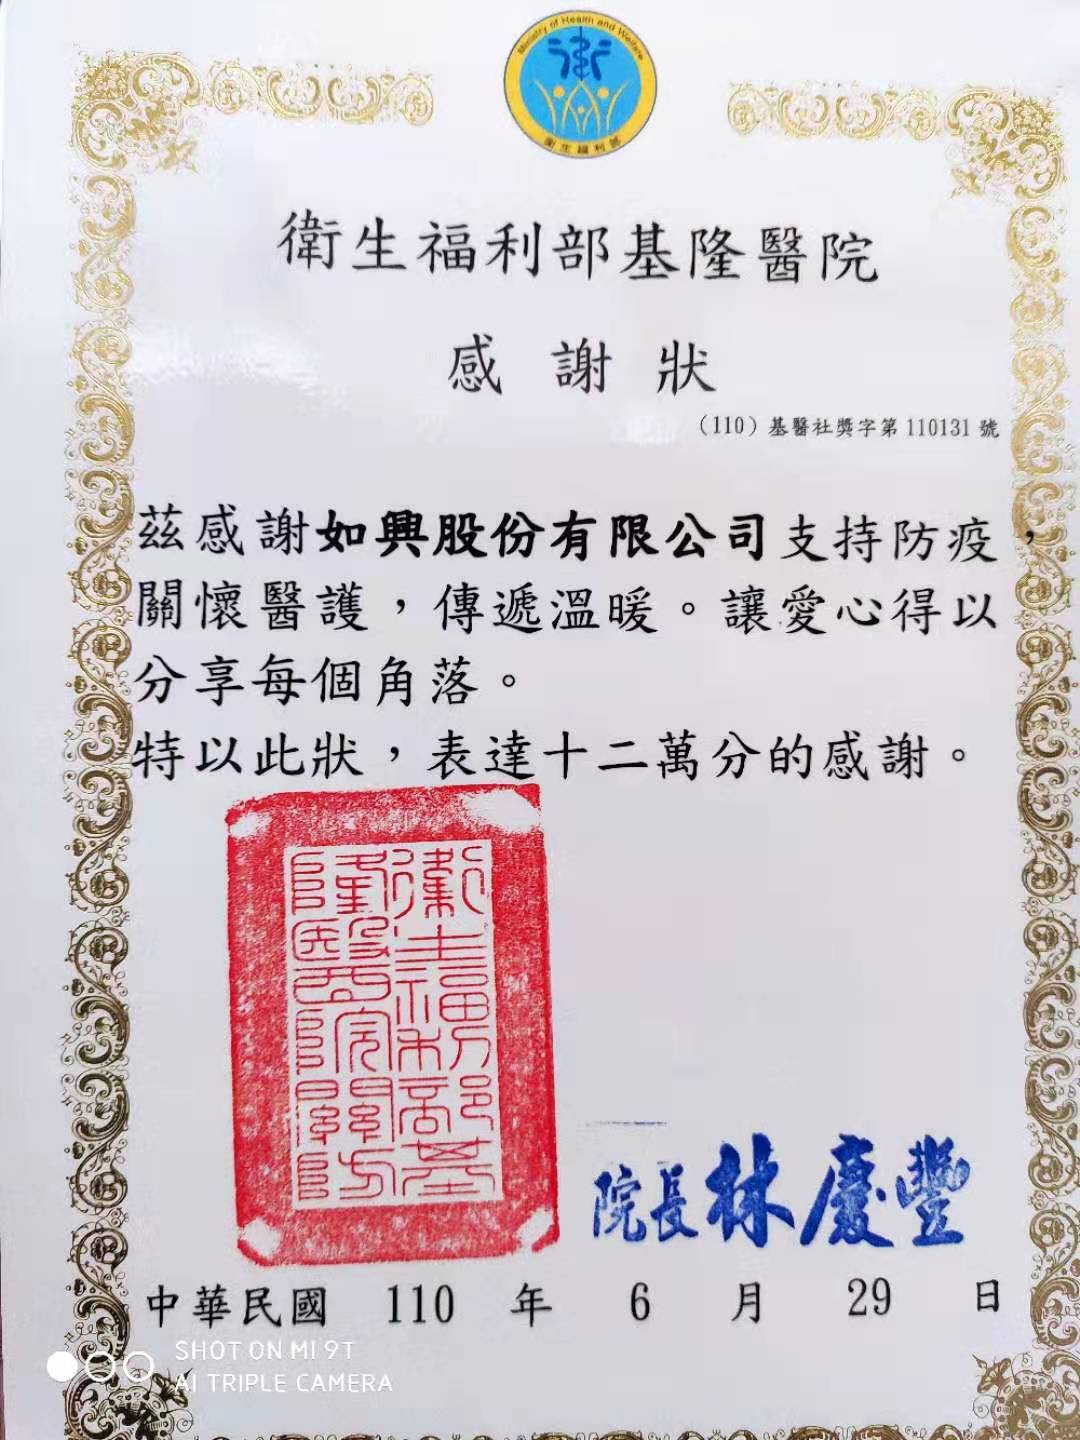 Ministry of Health and Welfare
衛生福利部
衛生福利部基隆醫院
感謝狀
（110）基醫社獎字第110131號
茲感謝如興股份有限公司支持防疫，
關懷醫護，傳遞溫暖。讓愛心得以
分享每個角落。
特以此狀，表達十二萬分的感謝。
衛生福利部基
隆醫院關防
院長林慶豐
中華民國 110 年 6 月 29 日
SHOT ON MI 9T
AI TRIPLE CAMERA